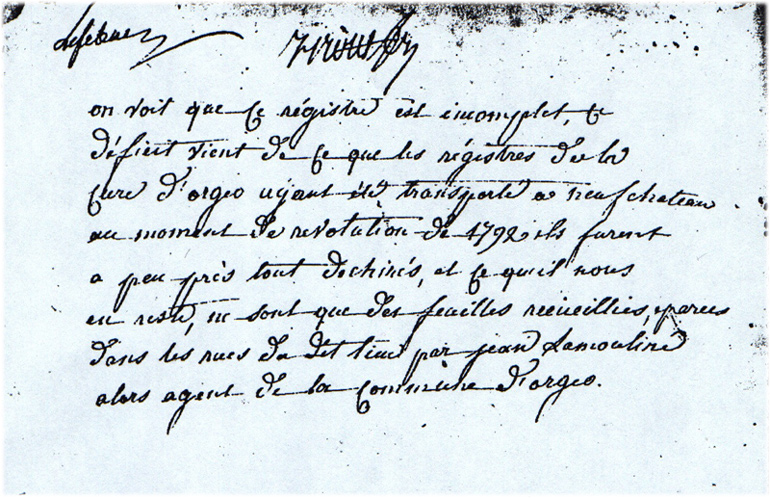 Lefebure
on voit que ce régistre est incomplet, ce
déficit vient de ce que les régistres de la
cure d'orgeo ayant été transporté a neufchateau
au moment de revolution de 1792 ils furent
a peu près tout dechirés, et ce qu'il nous
en reste, ne sont que des feuilles recueillies, eparses
dans les rues du dit lieu par jean Lamouline
alors agent de la commune d'orgeo.